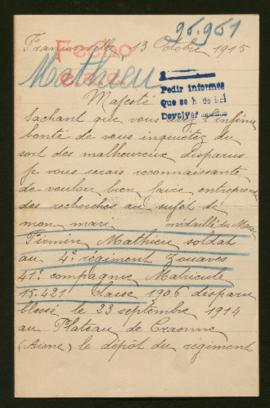 26.951
Franconville, 13 Octobre 1915
Mathieu
Pedir informes
Devolver
Majesté
Sachant que vous
bonté de vous inquietez du
sort des malheureux disparus
je vous serais reconnaissante
de vouloir bien faire entreprendre
des recherches au sujet de
mon mari médaillé du Maroc
Firmin Mathieu soldat
au 4e régiment Zouaves
41e compagnie Matricule
15.421 Classe 1906 disparu
blessé le 23 septembre 1914
au Plateau de Craonne
(Aisne) le dépôt du régiment